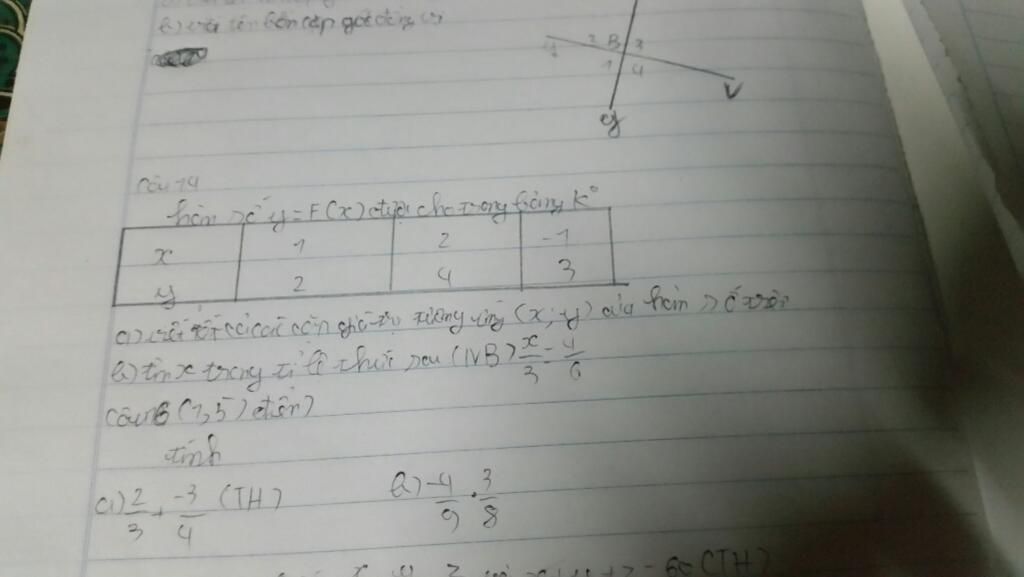 b)
y 2 B 3
1 4
v
y
Câu 14
hàm số y=F(x) được cho trong bảng
x 1 2 -1
y 2 4 3
a) viết tất cả các cặp giá trị tương ứng (x; y) của hàm số trên
b) tìm x trong tỉ lệ thức sau (NB) x/3 = 4/6
(1,5 điểm)
tính
a) 2/3 + -3/4 (TH)
b) -4/9 . 3/8
(TH)